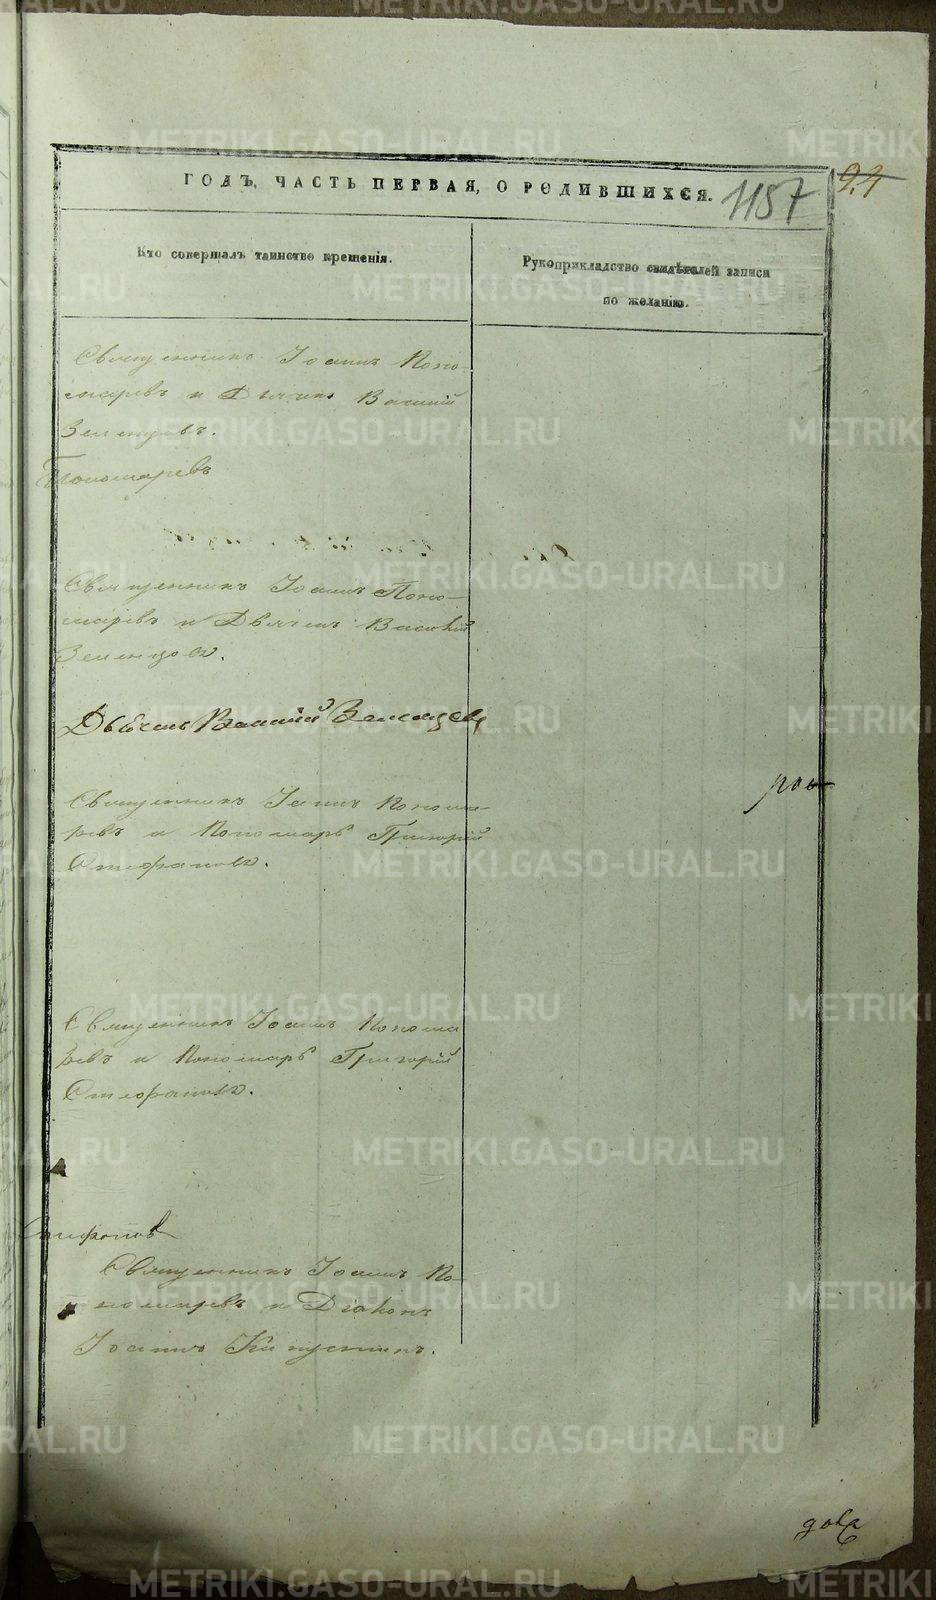 ГОДЪ, ЧАСТЬ ПЕРВАЯ, О РОДИВШИХСЯ.
1157
Кто совершалъ таинство крещенія.
Рукоприкладство свидѣтелей записи
по желанію.
Священникъ Іоаннъ Поно-
маревъ и Дьячекъ Василій
Зеленцовъ.
Пономаревъ
Священникъ Іоаннъ Поно-
маревъ и Дьячекъ Василій
Зеленцовъ.
Дьячекъ Василій Зеленцовъ
Священникъ Іоаннъ Понома-
ревъ и Пономарь Григорій
Стефановъ.
Священникъ Іоаннъ Понома
ревъ и Пономарь Григорій
Стефановъ.
Стефановъ
Священникъ Іоаннъ По-
номаревъ и Діаконъ
Іоаннъ Капустинъ.
METRIKI.GASO-URAL.RU